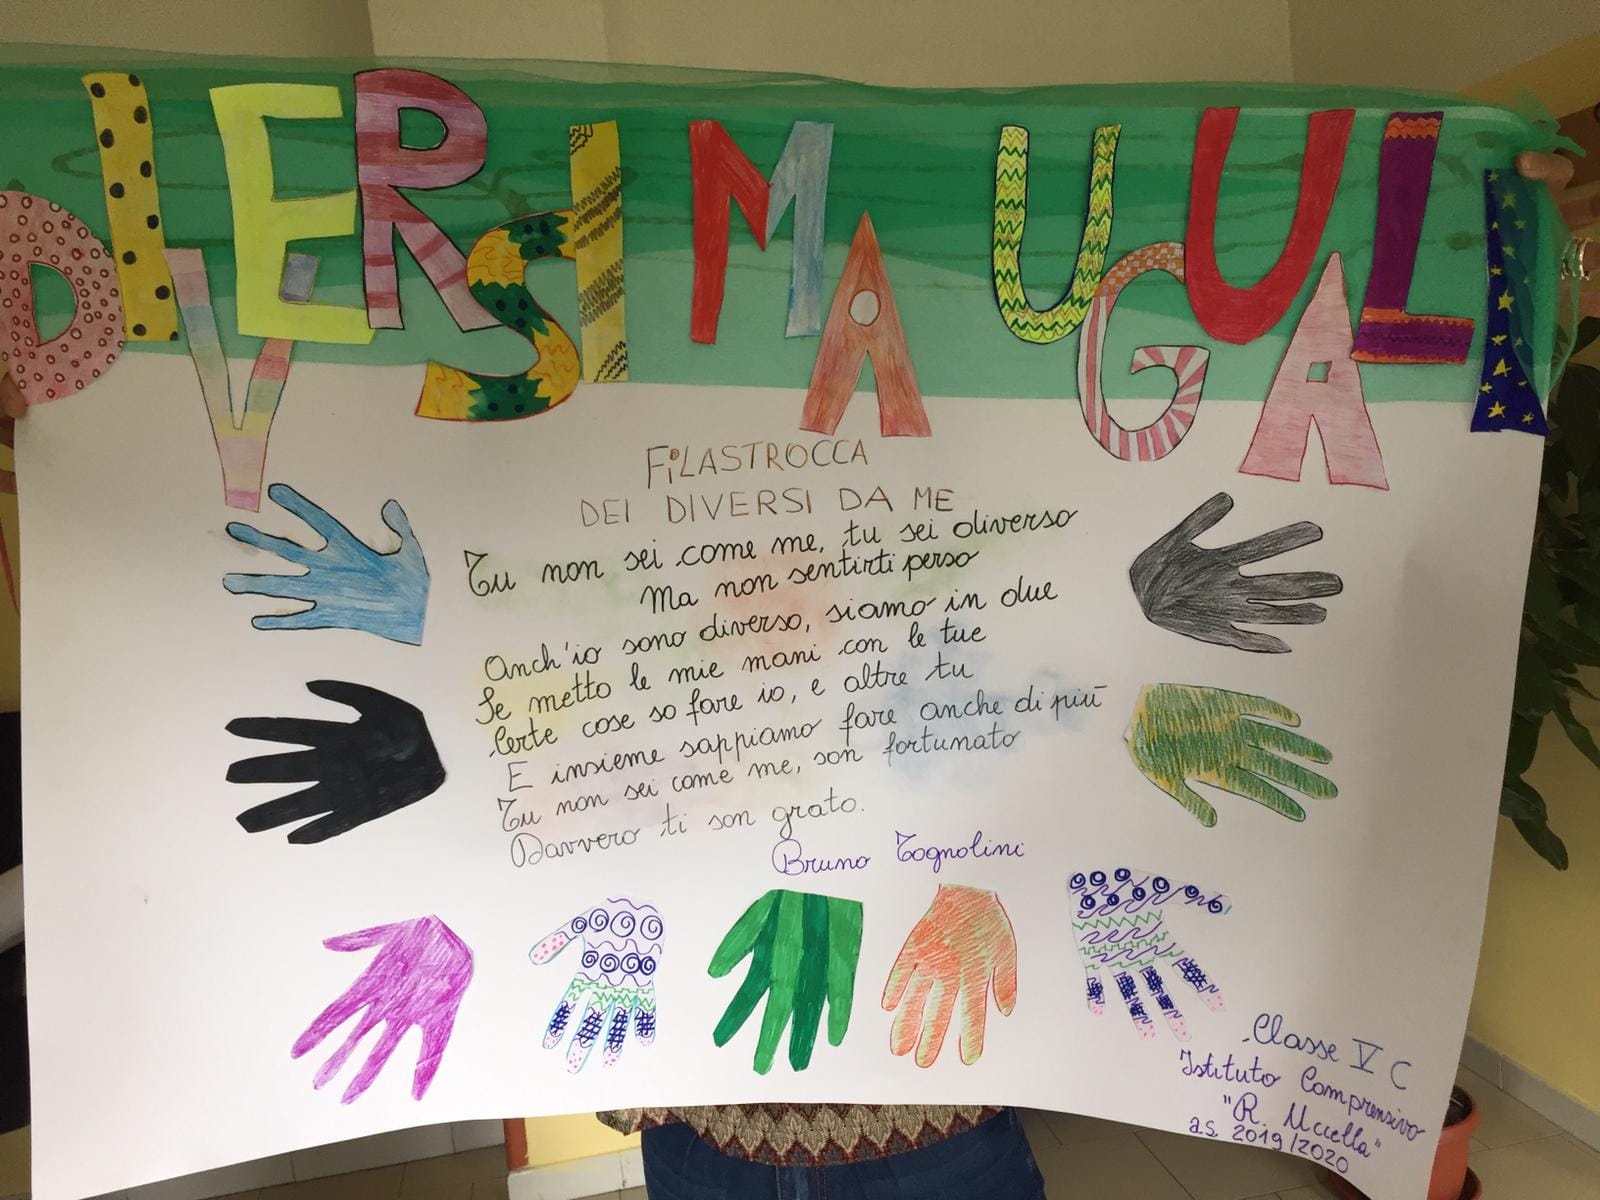 DIVERSI MA UGUALI
FILASTROCCA
DEI DIVERSI DA ME
Tu non sei come me, tu sei diverso
Ma non sentirti perso
Anch'io sono diverso, siamo in due
Se metto le mie mani con le tue
Certe cose so fare io, e altre tu
E insieme sappiamo fare anche di più
Tu non sei come me, son fortunato
Davvero ti son grato.
Bruno Tognolini
Classe V C
Istituto Comprensivo
"R. Uccella"
a.s. 2019/2020